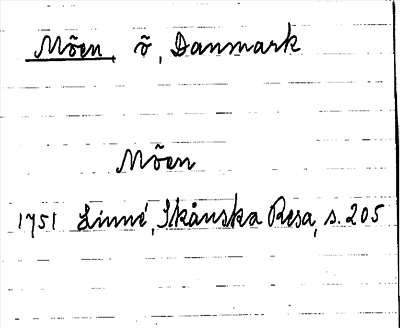 Möen, ö, Danmark
Möen
1751 Linné, Skånska Resa, s. 205